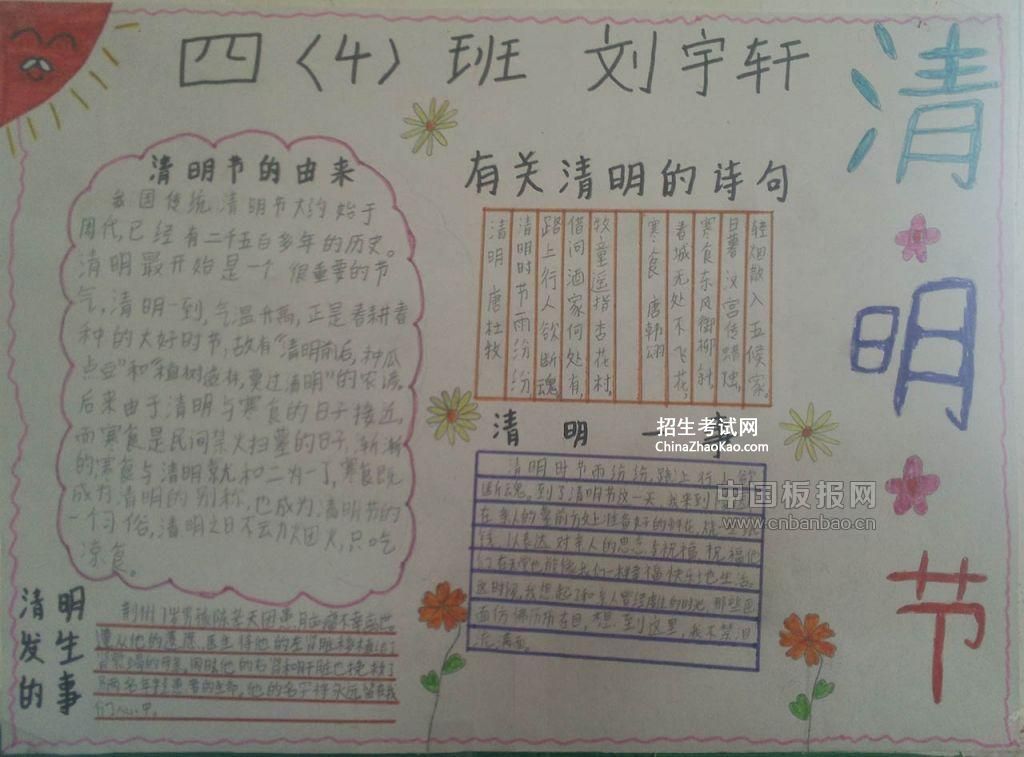 四〈4〉班 刘宇轩
清明节
清明节的由来
我国传统清明节大约始于
周代,已经有二千五百多年的历史。
清明最开始是一个很重要的节
气,清明一到,气温升高,正是春耕春
种的大好时节,故有“清明前后,种瓜
点豆”和“植树造林,莫过清明”的农谚。
后来由于清明与寒食的日子接近,
而寒食是民间禁火扫墓的日子,渐渐
的,寒食与清明就和二为一了,寒食既
成为清明的别称,也成为清明节的
一个习俗,清明之日不动烟火,只吃
凉食。
有关清明的诗句
清明 唐杜牧
清明时节雨纷纷
路上行人欲断魂
借问酒家何处有,
牧童遥指杏花村。
寒食 唐韩翃
春城无处不飞花,
寒食东风御柳斜
日暮汉宫传蜡烛,
轻烟散入五候家。
清明一事
清明时节雨纷纷,路上行人欲
断魂。到了清明节这一天,我来到
在亲人的墓前方上准备好的鲜花,烧
钱,以表达对亲人的思念与祝福,祝福他
们在天堂也能像我们一样幸福快乐地生活。
这时侯,我想起了和亲人曾经度过的时光,那些画
面仿佛历历在目,想到这里,我不禁泪
流满面。
清明
发生
的事
荆州
他的遗愿,医生将他的左肾
他的右肾和肝脏也挽救了
两名年轻患者的生命,他的名字将永远留在我
们心中。
招生考试网
ChinaZhaoKao.com
中国板报网
www.cnbanbao.cn